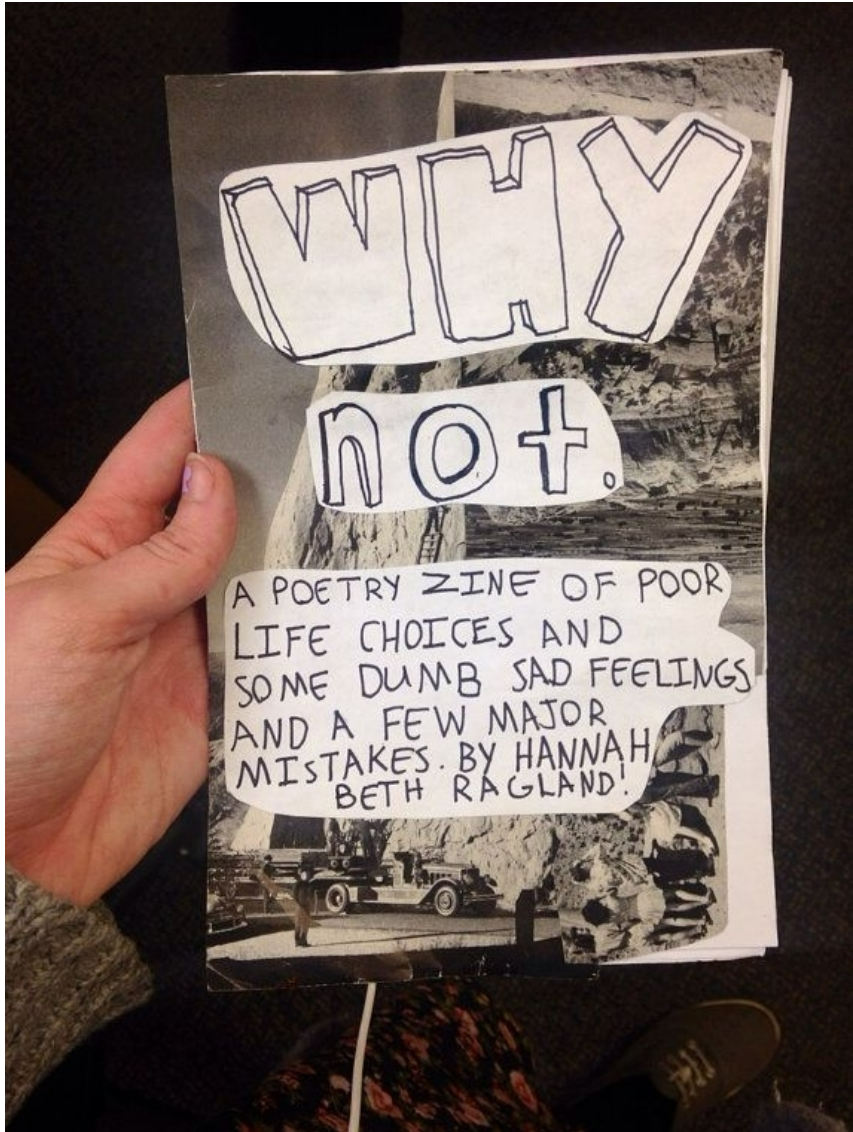 WHY
not.
A POETRY ZINE OF POOR
LIFE CHOICES AND
SOME DUMB SAD FEELINGS
AND A FEW MAJOR
MISTAKES. BY HANNAH
BETH RAGLAND!